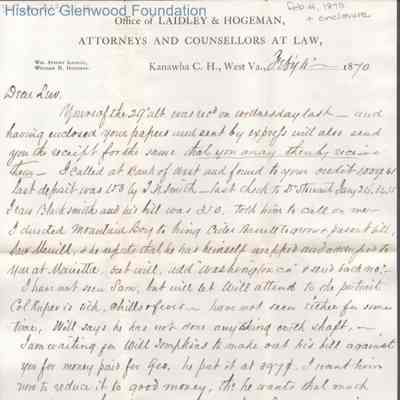 Historic Glenwood Foundation
Feb 4, 1870
+ enclosure
Office of LAIDLEY & HOGEMAN,
ATTORNEYS AND COUNSELLORS AT LAW,
WM. SYDNEY LAIDLEY,
WILLIAM H. HOGEMAN.
Kanawha C. H., West Va., Feby 4th 1870
Dear Luv.
Yours of the 29" ult was recd on wednesday last — and
having enclosed your papers and sent by express will also send
you the receipt for the same that you may thereby receive
them — I called at Bank of West and found to your credit
last deposit was 150 by J.N. Smith — last check to Dr Stewart Jany 26,
I saw Blacksmith and his bill was told him to call on me
I directed Mountain Boy to bring present bill,
Saw Merrill, & he reports that he has himself wrapped and
you at Marietta, but will add "Washington Co" & send back no.
I have not seen Sam, but will let Will attend to the portrait
Col Ruper is sick, chills & fever — have not seen either for some
time, Will says he has not done anything with shaft, —
I am waiting for Will Tompkins to make out his bill against
you for money paid for Geo, he put it at I want him
now to reduce it to good money, tho he wants that much